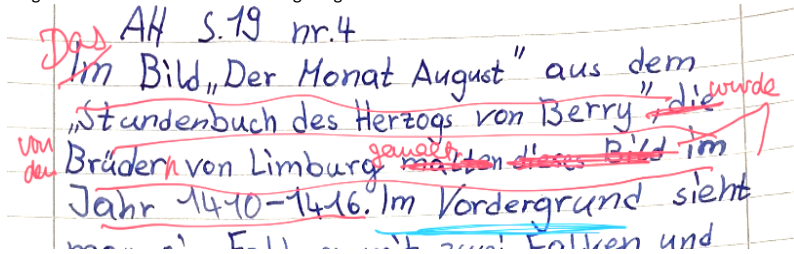 AH S.19 nr.4
Das
Im Bild „Der Monat August" aus dem
„Stundenbuch des Herzogs von Berry", die wurde
von den Brüdern von Limburg gemalt malten dieses Bild im
Jahr 1410-1416. Im Vordergrund sieht
Falken und